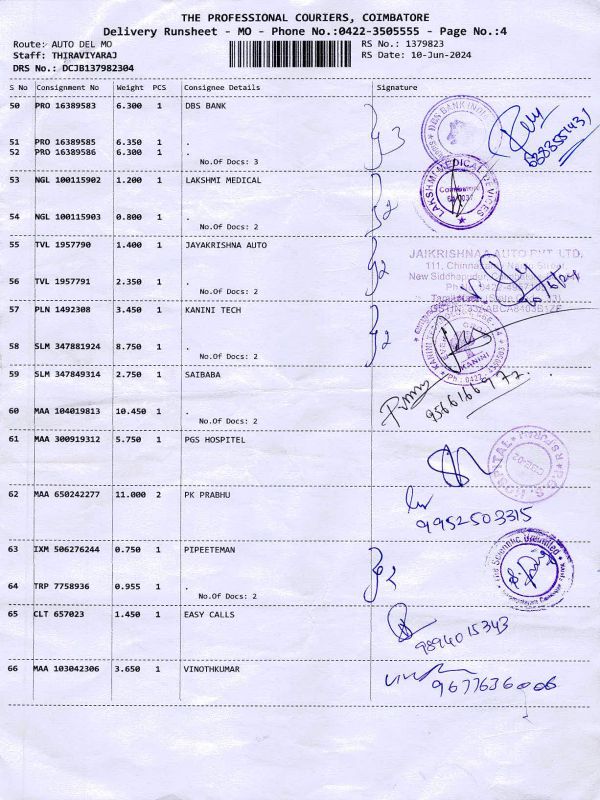 THE PROFESSIONAL COURIERS, COIMBATORE
Delivery Runsheet - MO - Phone No.:0422-3505555 - Page No.:4
Route: AUTO DEL MO RS No.: 1379823
Staff: THIRAVIYARAJ RS Date: 10-Jun-2024
DRS No.: DCJB137982304
S No Consignment No Weight PCS Consignee Details Signature
50 PRO 16389583 6.300 1 DBS BANK
51 PRO 16389585 6.350 1 .
52 PRO 16389586 6.300 1 .
No.Of Docs: 3
3
53 NGL 100115902 1.200 1 LAKSHMI MEDICAL
LAKSHMI MEDICAL DEVICES
Coimbatore
54 NGL 100115903 0.800 1 .
No.Of Docs: 2
2
55 TVL 1957790 1.400 1 JAYAKRISHNA AUTO
JAIKRISHNAA AUTO PVT. LTD.
56 TVL 1957791 2.350 1 .
No.Of Docs: 2
2
57 PLN 1492308 3.450 1 KANINI TECH
58 SLM 347881924 8.750 1 .
No.Of Docs: 2
2
KANINI
59 SLM 347849314 2.750 1 SAIBABA
9566166977
60 MAA 104019813 10.450 1 .
No.Of Docs: 2
61 MAA 300919312 5.750 1 PGS HOSPITEL
62 MAA 650242277 11.000 2 PK PRABHU
9952503315
63 IXM 506276244 0.750 1 PIPEETEMAN
64 TRP 7758936 0.955 1 .
No.Of Docs: 2
2
65 CLT 657023 1.450 1 EASY CALLS
9894015343
66 MAA 103042306 3.650 1 VINOTHKUMAR
9677636006